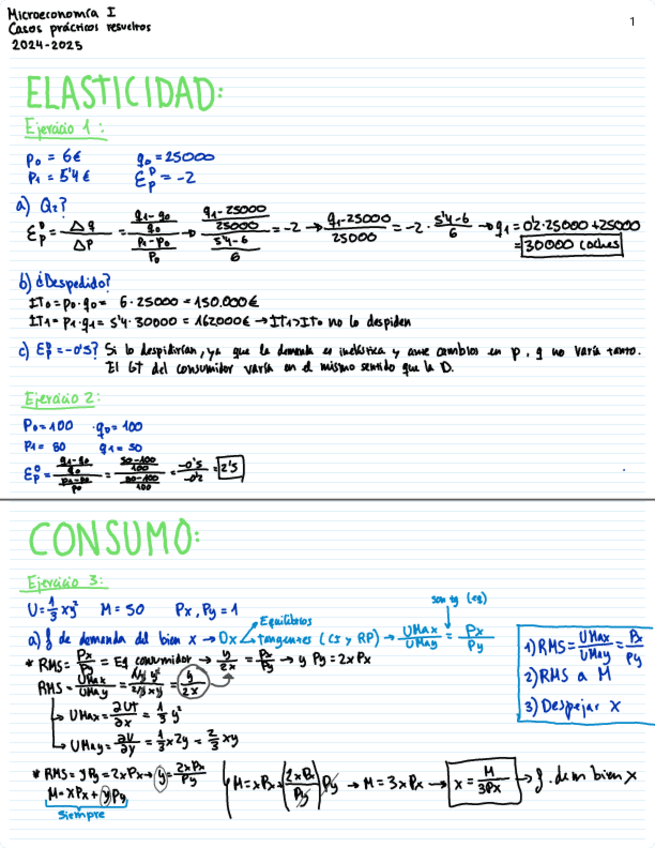 Microeconomía I
Casos prácticos resueltos
2024-2025
1
ELASTICIDAD:
Ejercicio 1:
P₀ = 6€ q₀ = 25000
P₁ = 5'4€ Ɛᴰₚ = -2
a) Q₂?
Ɛᴰₚ = Δq/ΔP = ((q₁-q₀)/q₀)/((P₁-P₀)/P₀) → ((q₁-25000)/25000)/((5'4-6)/6) = -2 → (q₁-25000)/25000 = -2 · (5'4-6)/6 → q₁ = 0'2·25000+25000
= 30000 coches
b) ¿Despedido?
IT₀ = P₀·q₀ = 6·25000 = 150.000€
IT₁ = P₁·q₁ = 5'4·30000 = 162000€ → IT₁>IT₀ no lo despiden
c) Ɛᴰₚ = -0'5? Si lo despidirían, ya que la demanda es inelástica y ante cambios en p, q no varía tanto.
El GT del consumidor varía en el mismo sentido que la D.
Ejercicio 2:
P₀ = 100 · q₀ = 100
P₁ = 80 q₁ = 50
Ɛᴰₚ = ((q₁-q₀)/q₀)/((P₁-P₀)/P₀) = ((50-100)/100)/((80-100)/100) = -0'5/-0'2 = 2'5
CONSUMO:
Ejercicio 3:
U = 1/3 xy² M = 50 Px, Py = 1
son eq (eq)
Equilibrios
a) f de demanda del bien x → Dx tangentes (CI y RP) → UMax/UMay = Px/Py
* RMS = Px/Py = Eq consumidor → y/2x = Px/Py → y Py = 2x Px
RMS = UMax/UMay = (1/3 y²)/(2/3 xy) = y/2x
UMax = ∂UT/∂x = 1/3 y²
UMay = ∂U/∂y = 1/3 x 2y = 2/3 xy
1) RMS = UMax/UMay = Px/Py
2) RMS a M
3) Despejar x
* RMS = yPy = 2xPx → y = 2xPx/Py
M = xPx + yPy
siempre
M = xPx + (2xPx/Py) Py → M = 3xPx → x = M/3Px → f. dem bien x